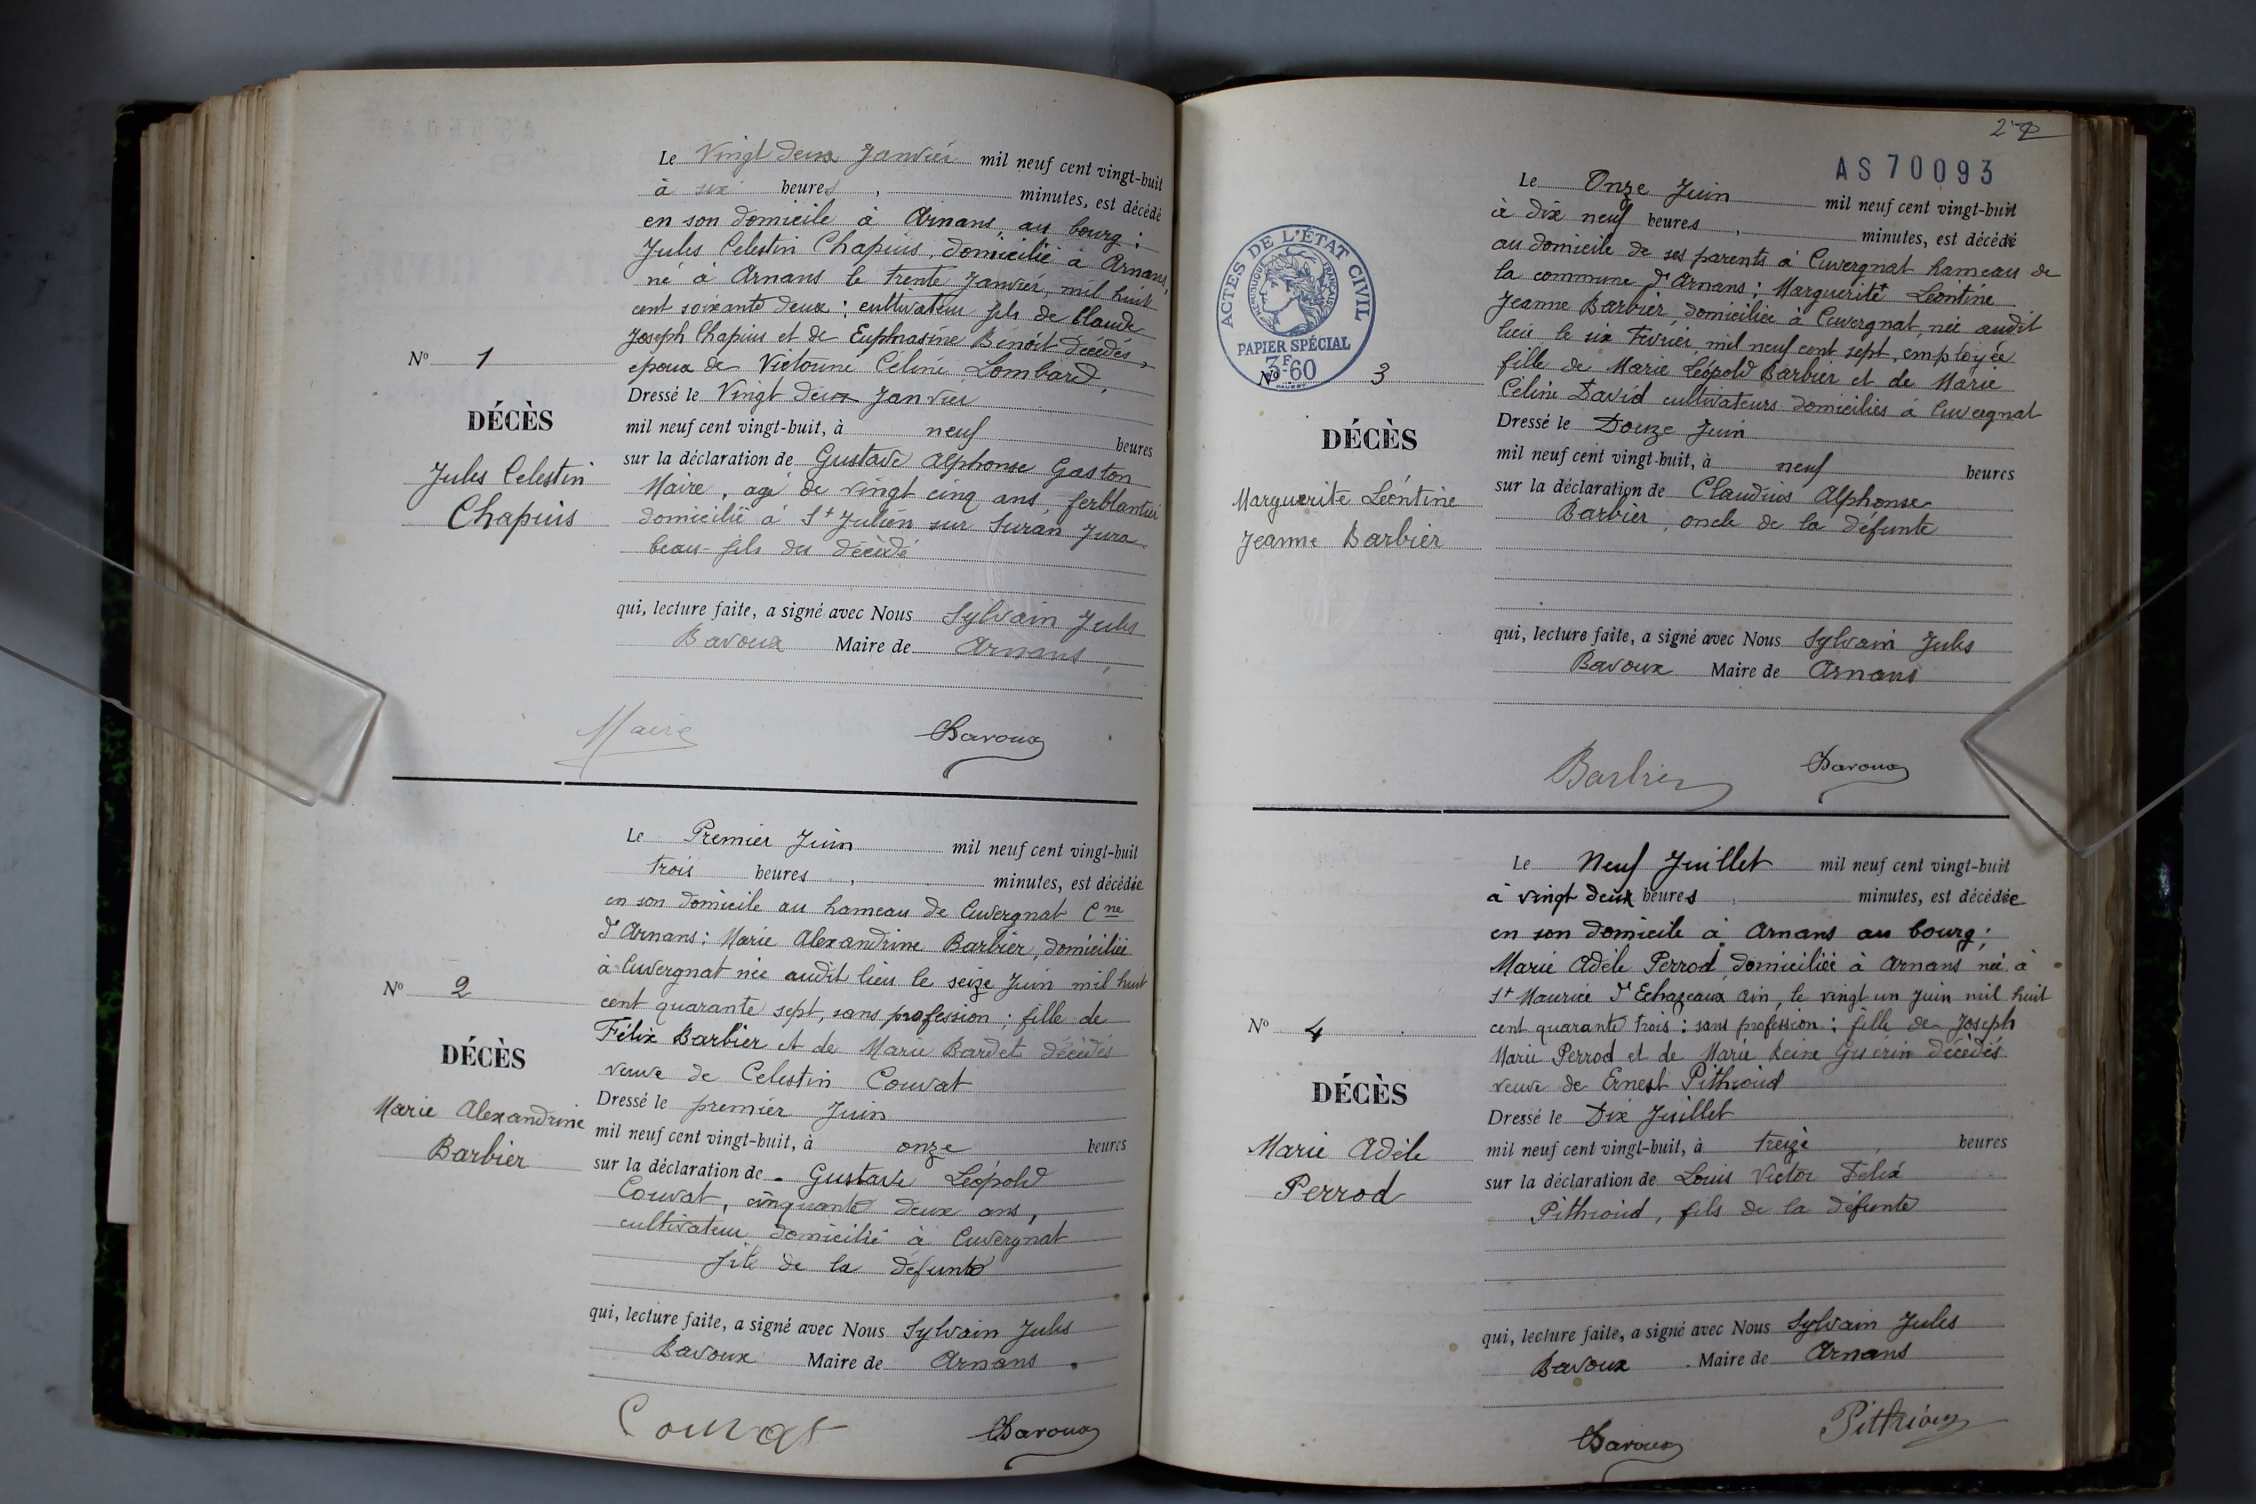 Le Vingt deux Janvier mil neuf cent vingt-huit
à six heures, minutes, est décédé
en son domicile à Arnans, au bourg :
Jules Celestin Chapuis, domicilié à Arnans,
né à Arnans le trente Janvier, mil huit
cent soixante deux : cultivateur fils de Claude
Joseph Chapuis et de Euphrasine Benoit décédés,
époux de Victorine Céline Lombard,
Dressé le Vingt deux Janvier
mil neuf cent vingt-huit, à neuf heures
sur la déclaration de Gustave Alphonse Gaston
Maire, agé de vingt cinq ans, ferblantier
domicilié à St Julien sur Suran Jura
beau-fils du décédé
qui, lecture faite, a signé avec Nous Sylvain Jules
Bavoux Maire de Arnans,
Maire Bavoux
No 1
DÉCÈS
Jules Celestin
Chapuis
Le Premier Juin mil neuf cent vingt-huit
trois heures, minutes, est décédée
en son domicile au hameau de Cuvergnat Cne
d'Arnans : Marie Alexandrine Barbier, domiciliée
à Cuvergnat née audit lieu le seize Juin mil huit
cent quarante sept, sans profession ; fille de
Félix Barbier et de Marie Bardet décédés
veuve de Celestin Couvat
Dressé le premier Juin
mil neuf cent vingt-huit, à onze heures
sur la déclaration de Gustave Léopold
Couvat, cinquante deux ans,
cultivateur domicilié à Cuvergnat
fils de la défunte
qui, lecture faite, a signé avec Nous Sylvain Jules
Bavoux Maire de Arnans.
Couvat Bavoux
No 2
DÉCÈS
Marie Alexandrine
Barbier
2
AS 70093
ACTES DE L'ÉTAT CIVIL
RÉPUBLIQUE FRANÇAISE
PAPIER SPÉCIAL
3F60
Le Onze Juin mil neuf cent vingt-huit
à dix neuf heures, minutes, est décédé
au domicile de ses parents à Cuvergnat hameau de
la commune d'Arnans : Marguerite Léontine
Jeanne Barbier, domiciliée à Cuvergnat, née audit
lieu le six Février mil neuf cent sept, employée
fille de Marie Léopold Barbier et de Marie
Céline David cultivateurs domiciliés à Cuvergnat
Dressé le Douze Juin
mil neuf cent vingt-huit, à neuf heures
sur la déclaration de Claudius Alphonse
Barbier, oncle de la défunte
qui, lecture faite, a signé avec Nous Sylvain Jules
Bavoux Maire de Arnans
Barbier Bavoux
No 3
DÉCÈS
Marguerite Léontine
Jeanne Barbier
Le Neuf Juillet mil neuf cent vingt-huit
à vingt deux heures, minutes, est décédée
en son domicile à Arnans au bourg ;
Marie Adèle Perrod, domiciliée à Arnans née à
St Maurice d'Echazeaux Ain, le vingt un Juin mil huit
cent quarante trois : sans profession : fille de Joseph
Marie Perrod et de Marie Reine Guérin décédés
veuve de Ernest Pithioud
Dressé le Dix Juillet
mil neuf cent vingt-huit, à treize heures
sur la déclaration de Louis Victor Félix
Pithioud, fils de la défunte
qui, lecture faite, a signé avec Nous Sylvain Jules
Bavoux Maire de Arnans
Bavoux Pithioud
No 4
DÉCÈS
Marie Adèle
Perrod